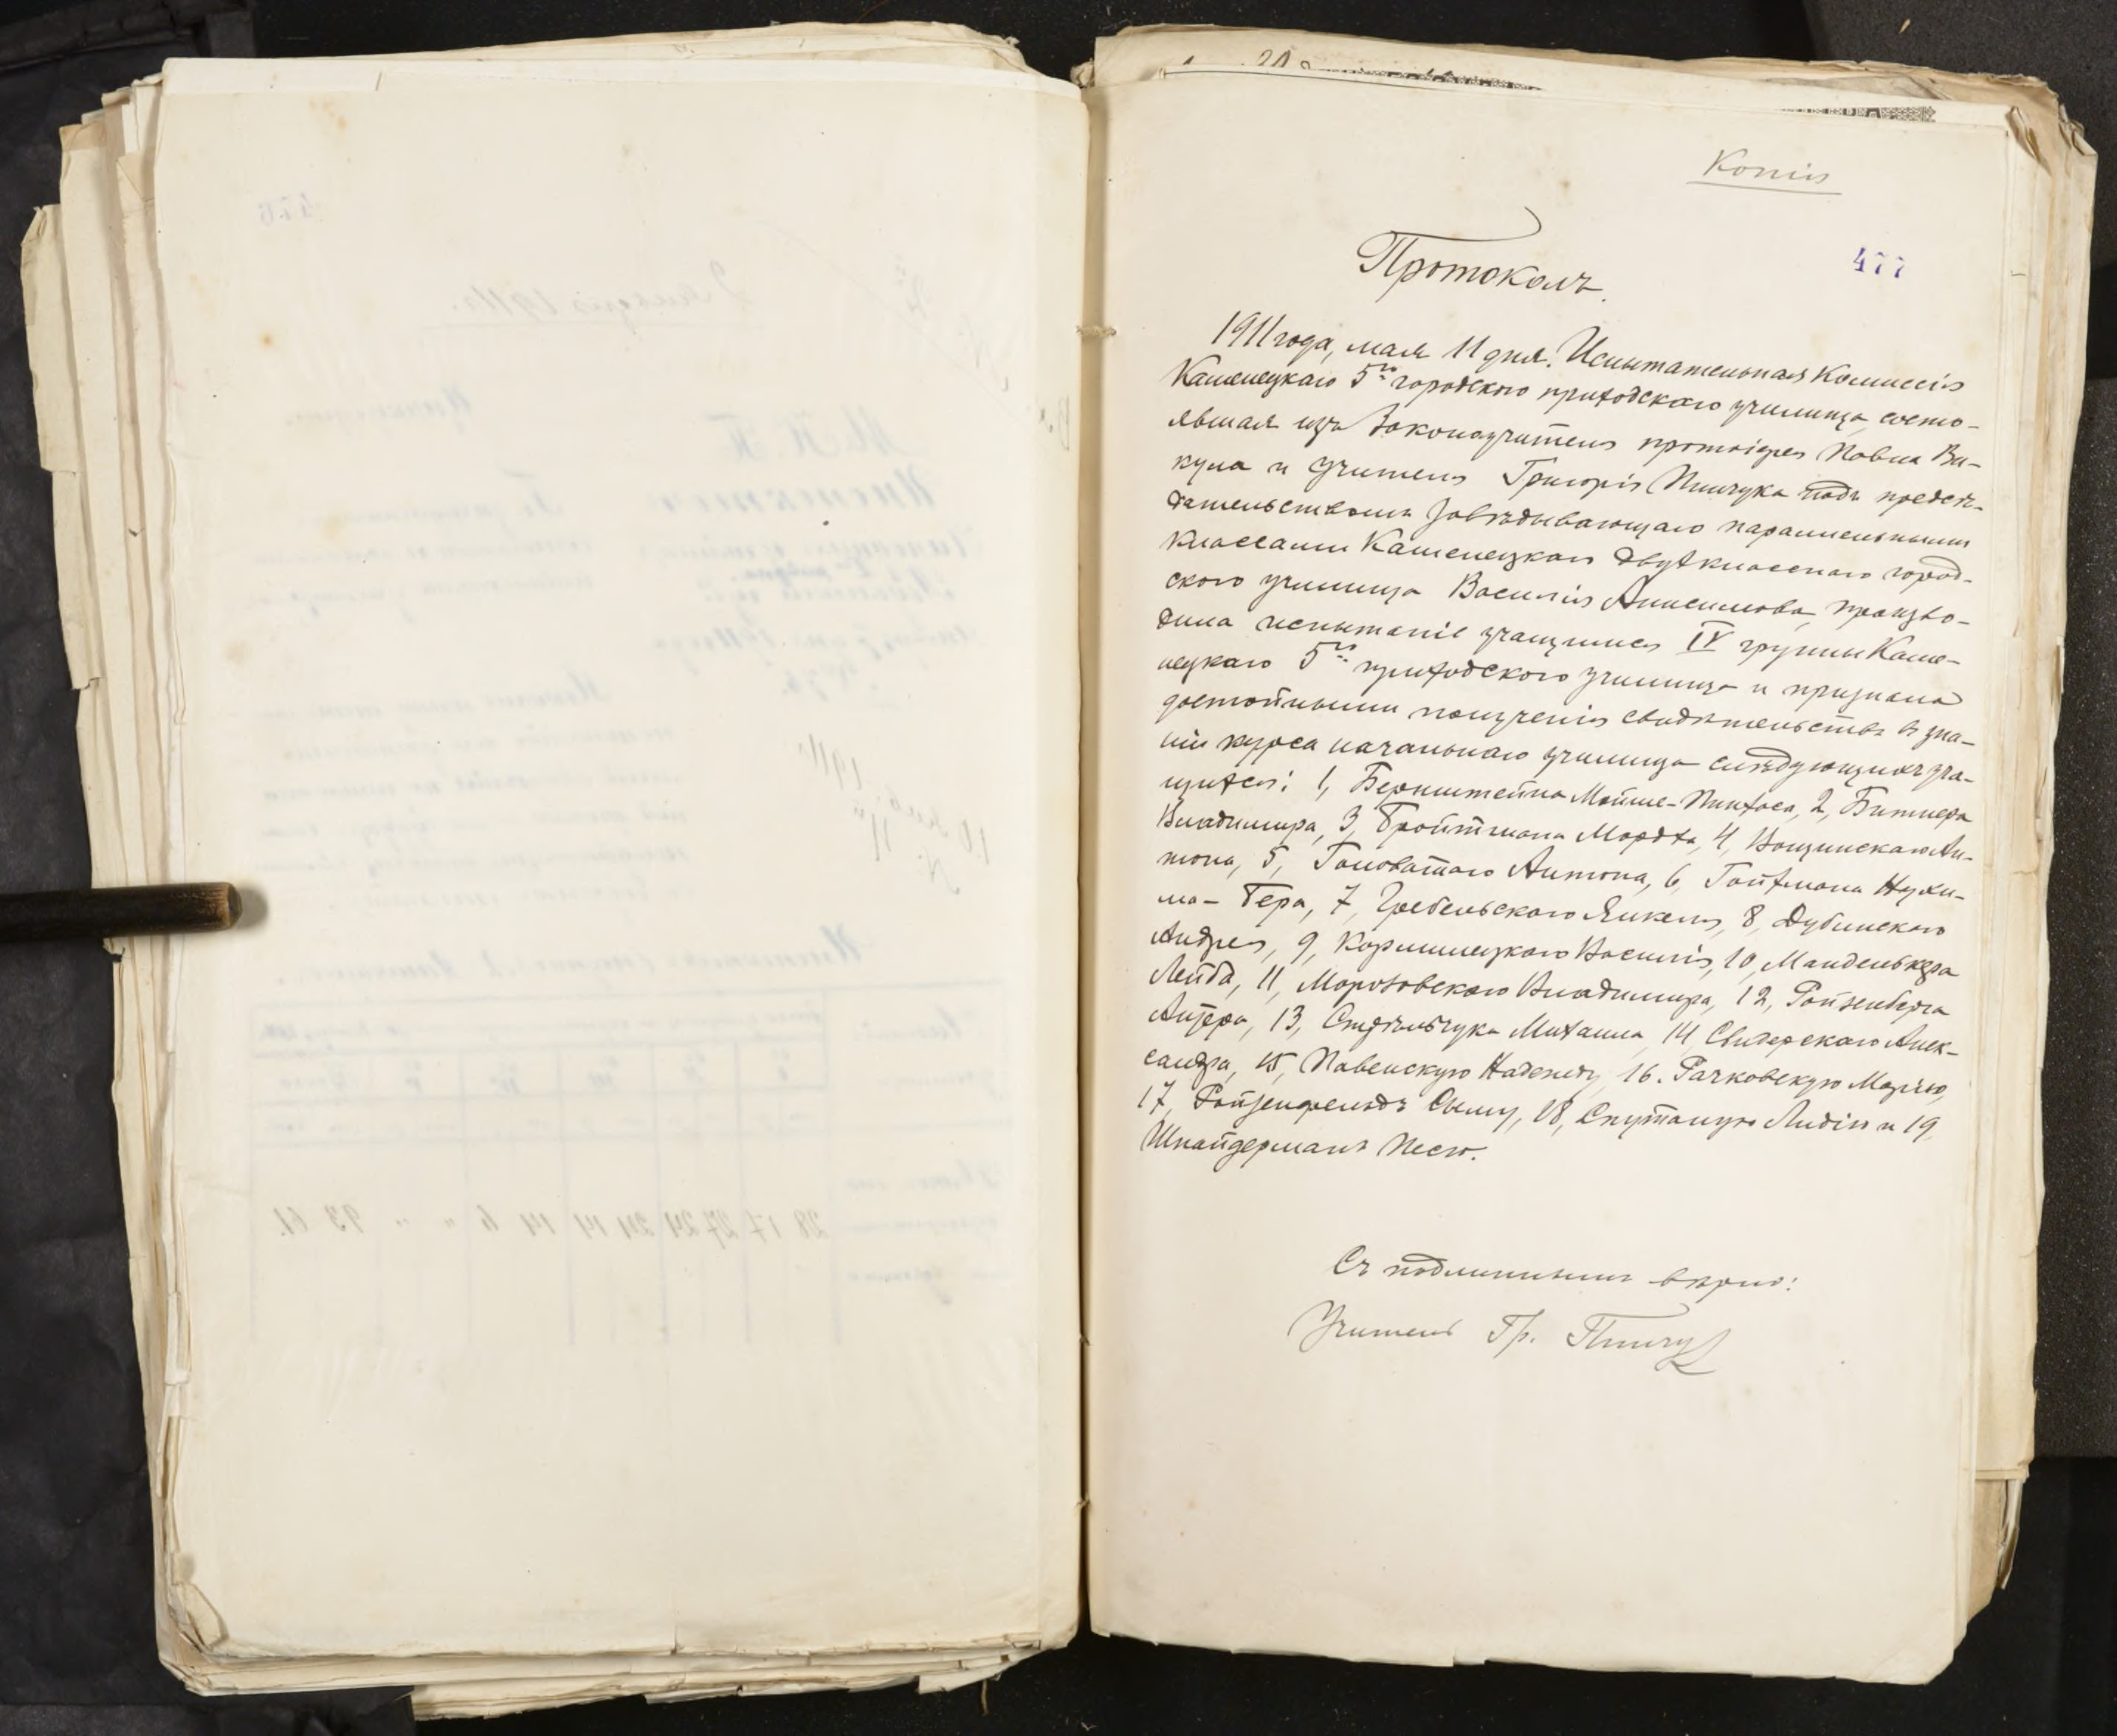 Копія
477
Протоколъ.
1911 года, мая 11 дня. Испытательная Комиссія
Каменецкаго 5го городского приходскаго училища, состо-
явшая изъ Законоучителя протоіерея Павла Ви-
кула и учителя Григорія Пинчука подъ предсѣ-
дательствомъ Завѣдывающаго параллельными
классами Каменецкаго двухкласснаго город-
ского училища Василія Анисимова, произво-
дила испытаніе учащимся IV группы Каме-
нецкаго 5го приходского училища и признала
достойными полученія свидѣтельствъ въ зна-
ніи курса начальнаго училища слѣдующихъ уча-
щихся: 1, Бернштейна Мойше-Пинхаса, 2, Битнера
Владимира, 3, Бройтмана Мордха, 4, Вощинскаго Ан-
тона, 5, Головатаго Антона, 6, Гойхмана Нухи-
ма-Бера, 7, Гребельскаго Янкеля, 8, Дубинскаго
Андрея, 9, Василія, 10, Манделькера
Лейба, 11, Морозовскаго Владимира, 12, Ройзенберга
13, Михаила, 14, Свидерскаго Алек-
сандра, 15, Павенскую Надежду, 16. Рачковскую Марію,
17, Ройзенфельдъ Сыму, 18, Скутаную Лидію и 19,
Шнайдерманъ Песю.
Съ подлиннымъ вѣрно:
Учитель Гр. Пинчук